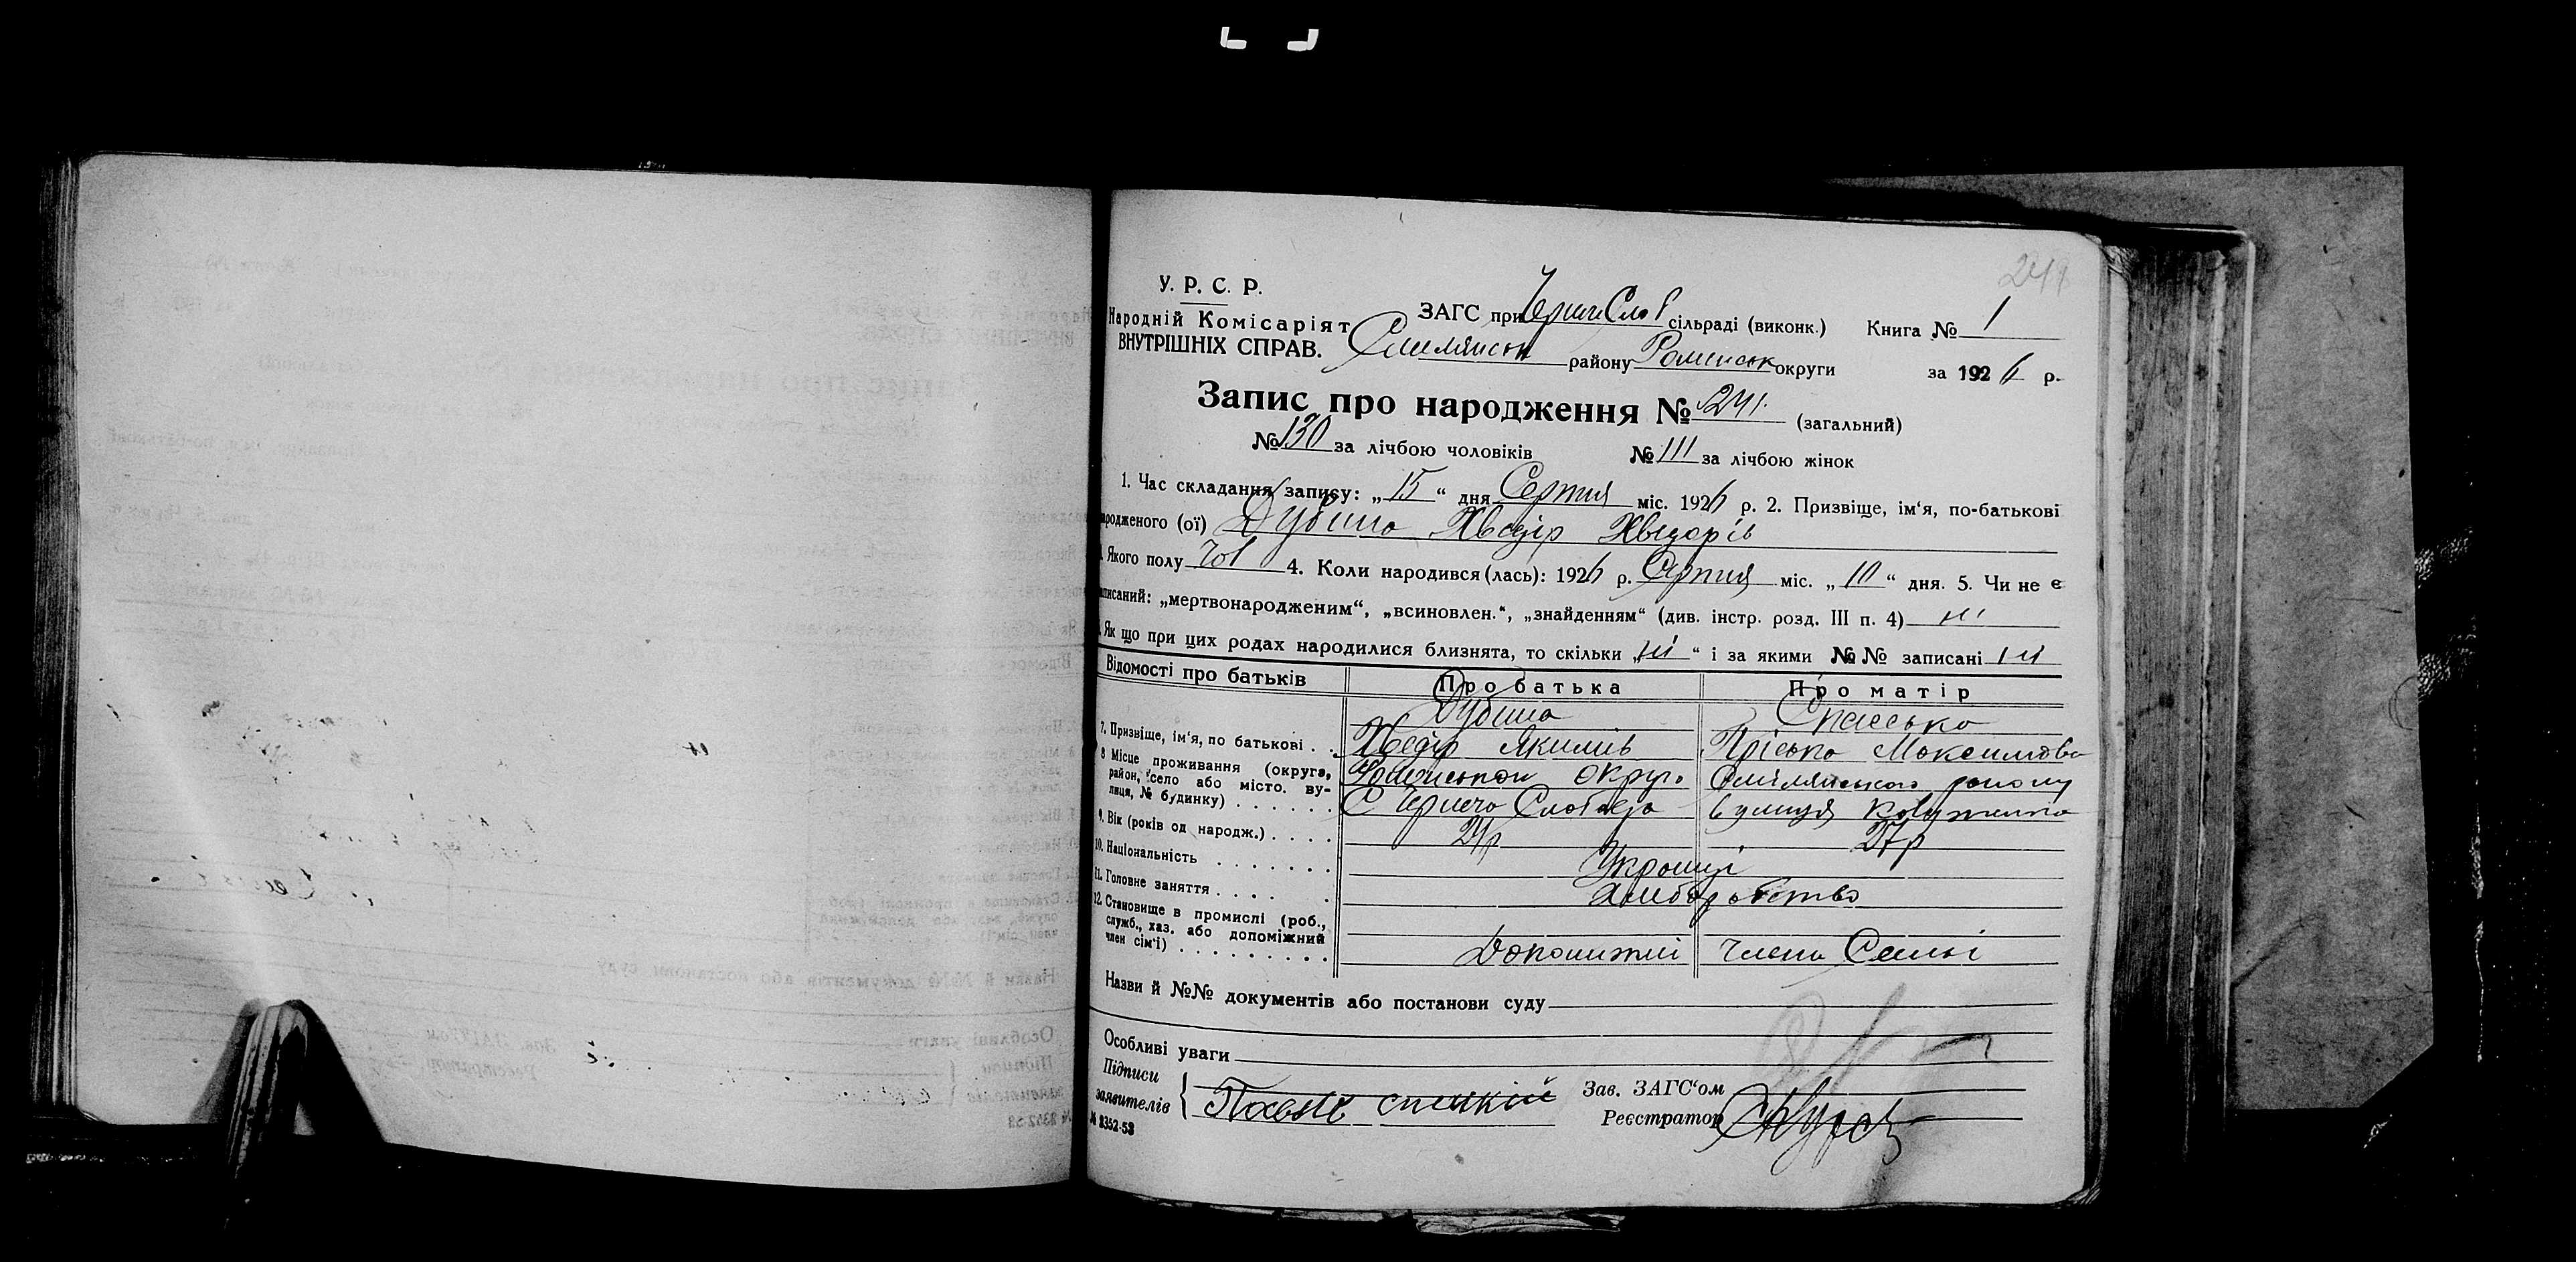 241
У. Р. С. Р.
Народній Комісаріят
ВНУТРІШНІХ СПРАВ.
ЗАГС при Черне Слоб сільраді (виконк.) Книга № 1
Смілянськ району Роменськ округи за 1926 р.
Запис про народження № 241 (загальний)
№ 130 за лічбою чоловіків № 111 за лічбою жінок
1. Час складання запису: „15“ дня Серпня міс. 1926 р. 2. Призвіще, ім‘я, по-батькові
народженого (ої) Дубина Хведір Хведорів
Якого полу чол 4. Коли народився (лась): 1926 р. Серпня міс. „10“ дня. 5. Чи не є
записаний: „мертвонародженим“, „всиновлен.“, „знайденням“ (див. інстр. розд. III п. 4) ні
Як що при цих родах народилися близнята, то скільки „ні“ і за якими №№ записані ні
Відомості про батьків Про батька Про матір
7. Призвіще, ім‘я, по батькові . . Дубина Хведір Якимів Прісько Максимовна
8 Місце проживання (округа, район, село або місто. вулиця, № будинку) . . . . . . Роменської округи Смілянського району
С Чернеча Слобода вулиця
9. Вік (років од народж.) . . . . 24р 27р
10. Національність . . . . . . . Українці
11. Головне заняття . . . . . Хліборобство
12. Становище в промислі (роб., служб., хаз. або допоміжний член сім‘і) . . . . . . . . . Допоміжні члени Семьі
Назви й №№ документів або постанови суду
Особливі уваги
Підписи
заявителів
Зав. ЗАГС‘ом
Реєстратор
№ 2352-53